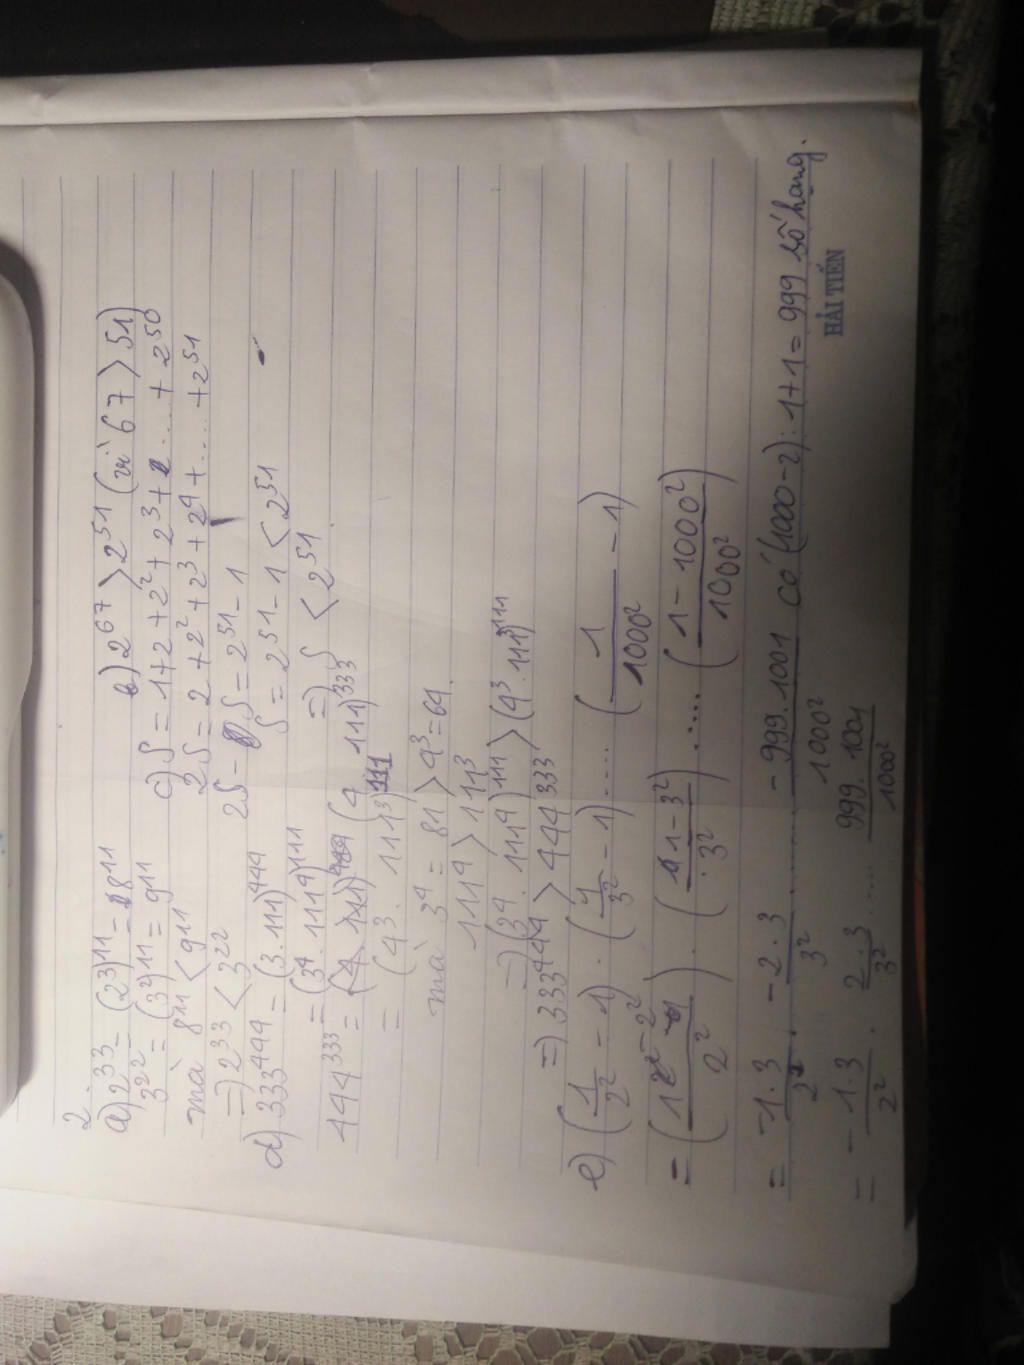 2.
a) 2^33 = (2^3)^11 = 8^11
3^22 = (3^2)^11 = 9^11
mà 8^11 < 9^11
=) 2^33 < 3^22
b) 2^67 > 2^51 (vì 67 > 51)
c) S = 1 + 2 + 2^2 + 2^3 + ..... + 2^50
2S = 2 + 2^2 + 2^3 + 2^4 + .... + 2^51
2S - S = 2^51 - 1
S = 2^51 - 1 < 2^51
=) S < 2^51
d) 333^444 = (3.111)^444
= (3^4.111^4)^111
444^333 = (4 111)^333
= (4^3.111^3)^111
mà 3^4 = 81 > 4^3 = 64.
111^4 > 111^3
=) (3^4.111^4)^111 > (4^3.111^3)^111
=) 333^444 > 444^333
e) (1/2^2 - 1) . (1/3^2 - 1) ..... (1/1000^2 - 1)
= (1 - 2^2/2^2) . (1 - 3^2/3^2) ..... (1 - 1000^2/1000^2)
= -1.3/2^2 . -2.3/3^2 ........ -999.1001/1000^2 có (1000-2):1+1 = 999 số hạng.
= - 1.3/2^2 . 2.3/3^2 ..... 999.1001/1000^2
HẢI TIẾN